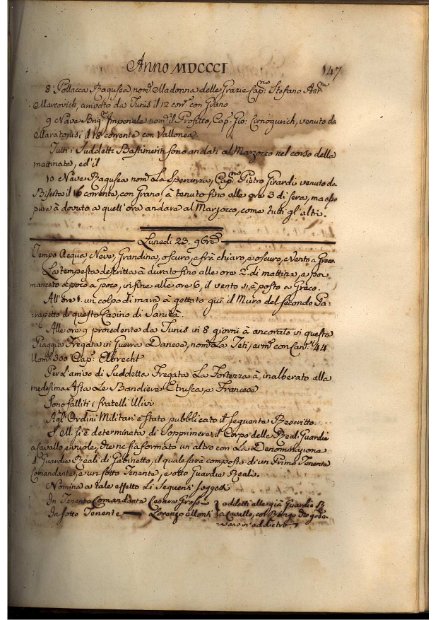 Anno MDCCCI 147
8 Polacca Ragusea nom.ª Madonna delle Grazie Cap.ⁿ Stefano
Marcovich, arrivato da Tunis il 12 corr.e con Grano
9 Nave Imperiale nom.ª Il Profetto, Cap.ⁿ Gio: venuto da
il 18 corrente con Vallonea
Tutti i Suddetti Bastimenti sono andati al Marzocco nel corso della
mattinata, ed il
10 Nave Ragusea nom.ª La Cap.ⁿ Pietro Girardi venuto da
Biserta il 16 corrente, con grano à tenuto fino alle ore 3 di sera, ma
pure à dovuto a quell'ora andare al Marzocco, come tutti gl'altri.
Lunedì 23. 9bre
Tempo Acqua, Neve, Grandine, oscuro, e frà chiaro, e oscuro, e Vento a
La tempesta descritta à durato fino alle ore 2 di mattina, e poi
mancato a poco a poco, infine alle ore 6, il vento si à posto a Greco.
All'ore 1. un colpo di mare à gettato qui il Muro del secondo
di questo Casino di Sanità.
Alle ore 9 procedente da Tunis in 8 giorni à ancorato in questa
Spiaggia Fregata in Guerra Danese, nom.ª La Teti, arm.ª con Cann.i 44
Uom. 300 Cap.ⁿ Albrecht
Per l'arrivo di Suddetta Fregata La Fortezza à inalberato alla
medesima Asta Le Bandiere Etrusca, e Francese
Sono falliti i fratelli Ulivi
Agl'Ordini Militari è stato pubblicato il seguente Rescritto.
S. M. si è determinata di Sopprimere il Corpo delle R. di Guardie
a Cavallo e Nobile, che ne sia formato un altro con La Denominazione
di Guardie Reali di Gabinetto, il quale sarà composto di un Primo Tenente
Comandante, e un sotto Tenente, e otto Guardie Reali.
Nomina a tale effetto Li Seguenti Soggetti
In Tenente Comandante Addetti alle già Guardie R.
In sotto Tenente Lorenzo a Cavallo, col
addietro